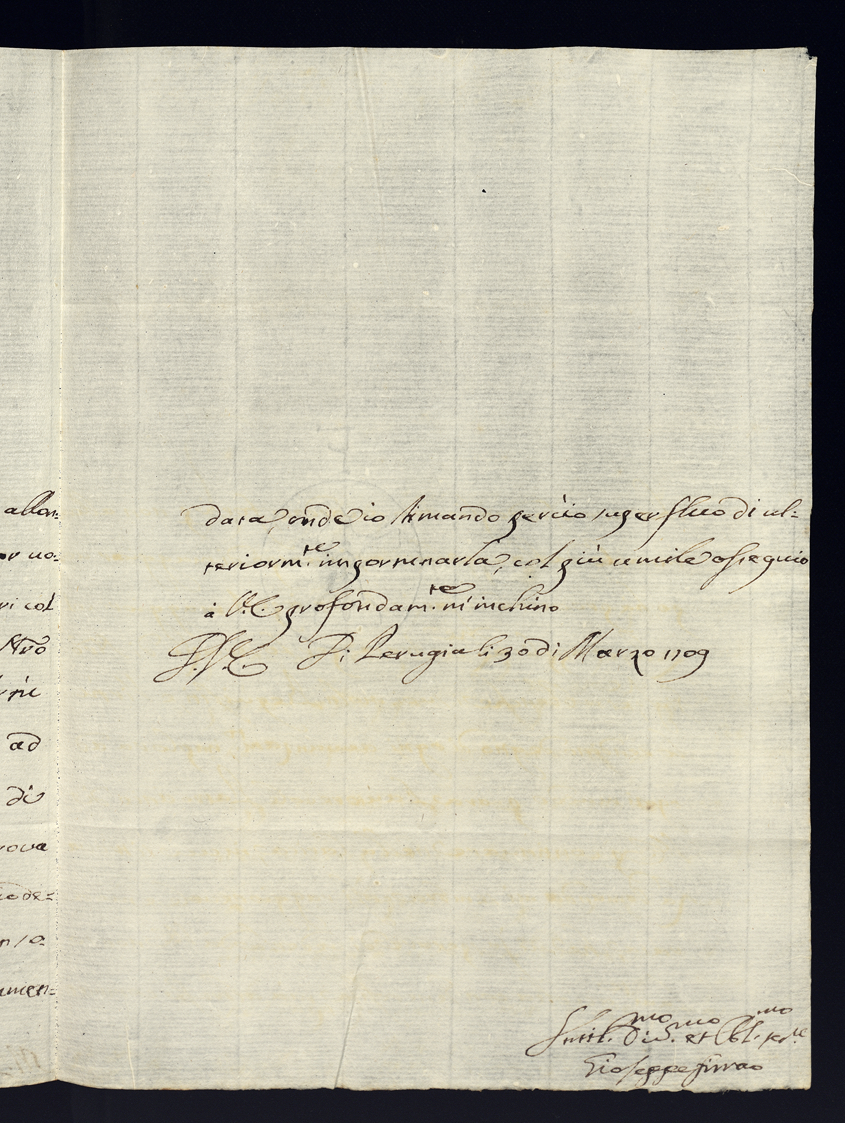 allon:
or uo:
ri col
Nr̃o
ad
di
rova
de=
n/o:
umen:
data onde io stimando perciò superfluo di ul:
teriorm.te importunarla, col più umile ossequio
à V.E. profondam.te m'inchino
D.V.E. Di Perugia li 30 di Marzo 1709
Umil.mo Div.mo et Obl.mo ser.re
Gioseppe firrao